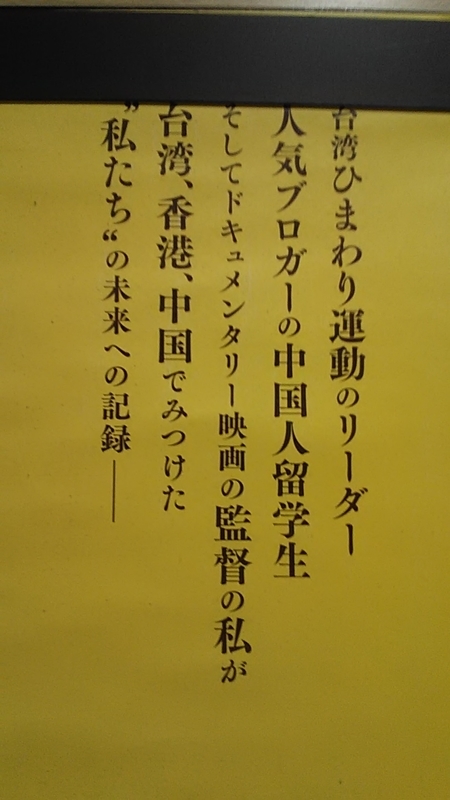 台湾ひまわり運動のリーダー
人気ブロガーの中国人留学生
そしてドキュメンタリー映画の監督の私が
台湾、香港、中国でみつけた
”私たち“の未来への記録──